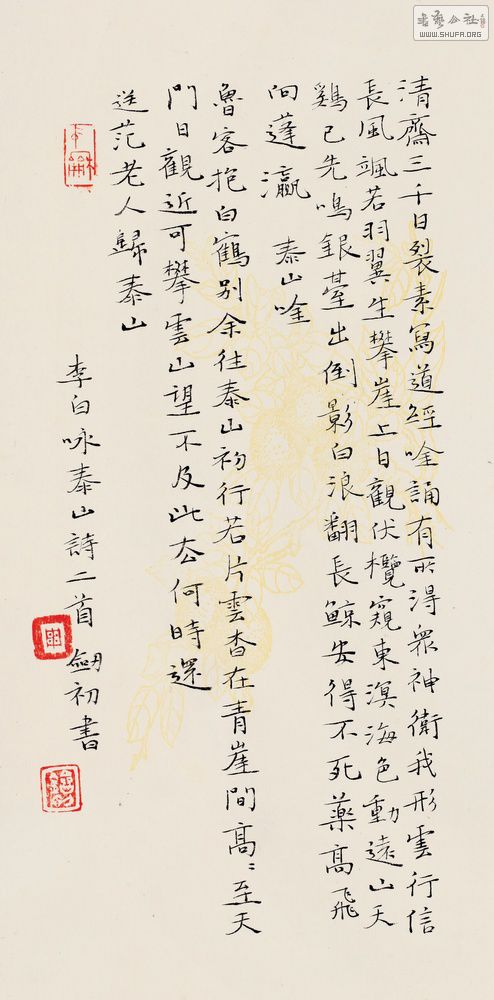 清齋三千日裂素寫道經唫誦有所得眾神衛我形雲行信
長風颯若羽翼生攀崖上日觀伏欖窺東溟海色動遠山天
鷄已先鳴銀臺出倒影白浪翻長鯨安得不死藥高飛
向蓬瀛 泰山唫
魯客抱白鶴別余往泰山初行若片雲杳在青崖間高〻至天
門日觀近可攀雲山望不及此去何時還
送范老人歸泰山
李白咏泰山詩二首 劒初書
書藝公社
WWW.SHUFA.ORG